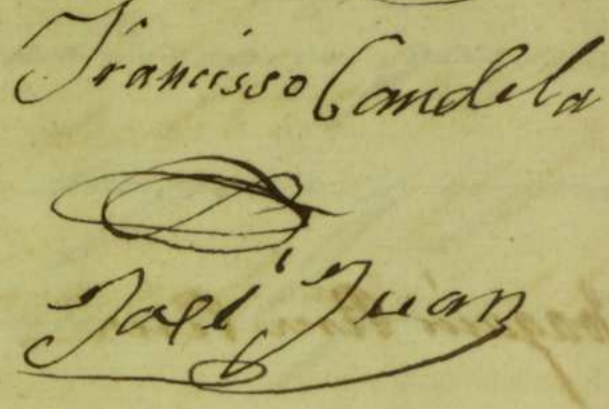 Francisso Candela
José Juan